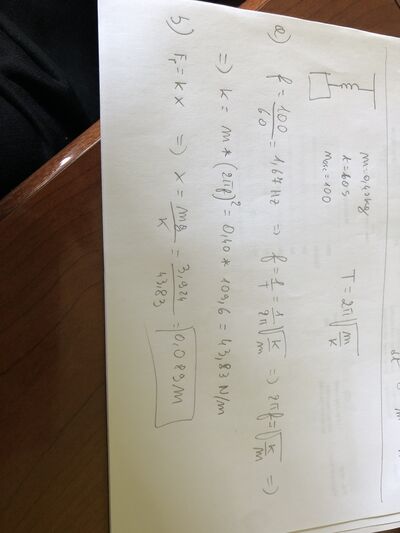 m=0,40kg
t=60s
nosc=100
T = 2π√(m/k)
a) f = 100/60 = 1,67Hz => f = 1/T = 1/2π √(k/m) => 2πf = √(k/m) =>
=> k = m * (2πf)² = 0,40 * 109,6 = 43,83 N/m
b) Fr = k x => x = mg/k = 3,924/43,83 = 0,089m